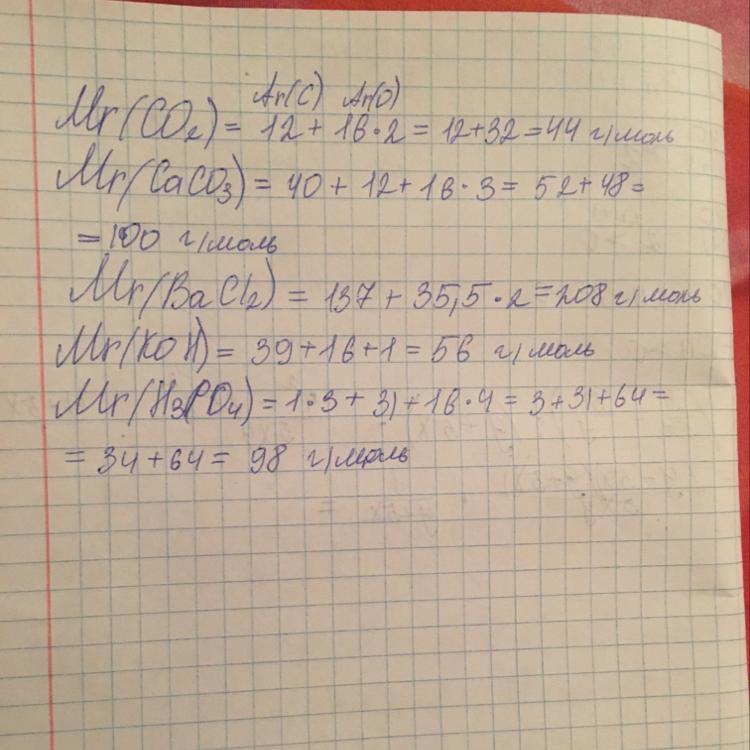 Ar(C) Ar(O)
Mr(CO₂) = 12 + 16·2 = 12+32 = 44 г/моль
Mr(CaCO₃) = 40 + 12 + 16·3 = 52 + 48 =
= 100 г/моль
Mr(BaCl₂) = 137 + 35,5·2 = 208 г/моль
Mr(KOH) = 39 + 16 + 1 = 56 г/моль
Mr(H₃PO₄) = 1·3 + 31 + 16·4 = 3 + 31 + 64 =
= 34 + 64 = 98 г/моль